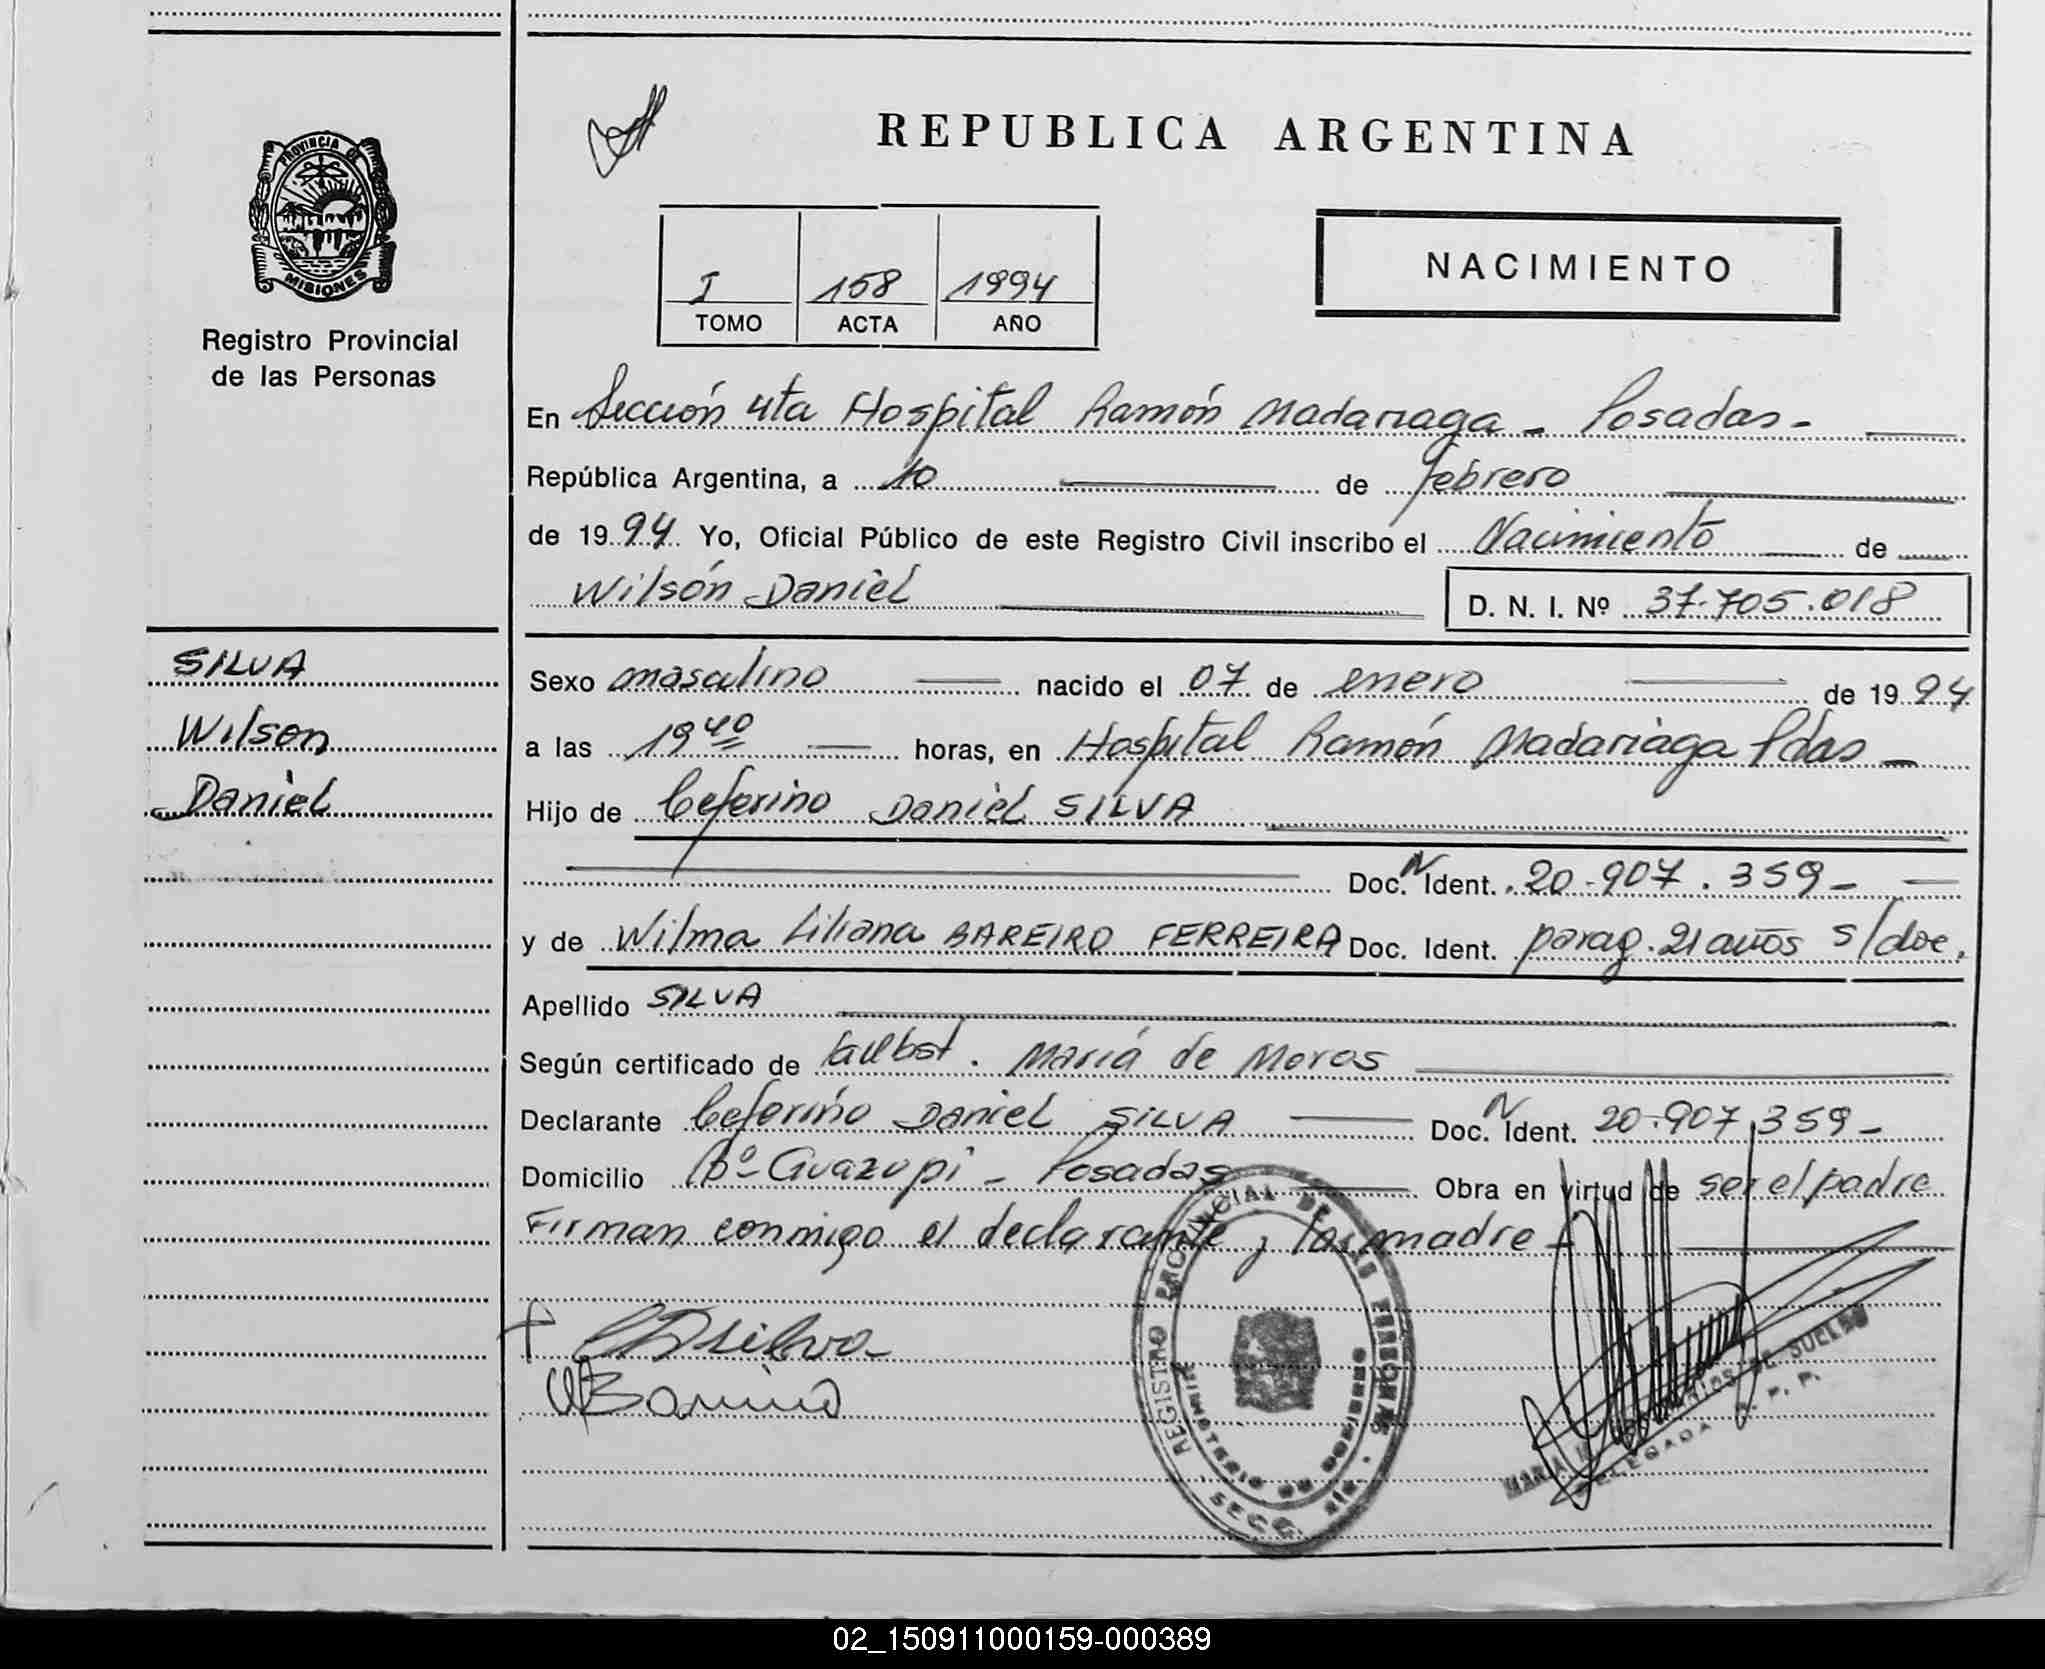 PROVINCIA DE
MISIONES
Registro Provincial
de las Personas
REPUBLICA ARGENTINA
I 158 1994
TOMO ACTA AÑO
NACIMIENTO
En Sección 4ta Hospital Ramón Madariaga - Posadas -
República Argentina, a 10 de febrero
de 1994 Yo, Oficial Público de este Registro Civil inscribo el Nacimiento de
Wilson Daniel D. N. I. Nº 37.705.018
SILVA
Wilson
Daniel
Sexo masculino nacido el 07 de enero de 1994
a las 19 40 horas, en Hospital Ramón Madariaga Pdas -
Hijo de Ceferino Daniel SILVA
Doc. N Ident. 20.907.359 -
y de Wilma Liliana BAREIRO FERREIRA Doc. Ident. parag. 21 años s/doc.
Apellido SILVA
Según certificado de María de Moros
Declarante Ceferino Daniel SILVA Doc. N Ident. 20.907.359 -
Domicilio Bº Guazupi - Posadas Obra en virtud de ser el padre
Firman conmigo el declarante y la madre -
CDSilva
REGISTRO PROVINCIAL DE LAS PERSONAS
MINISTERIO DE GOBIERNO
SECC.
MARIA DE SUELDO
DELEGADA R. P. P.
02_150911000159-000389